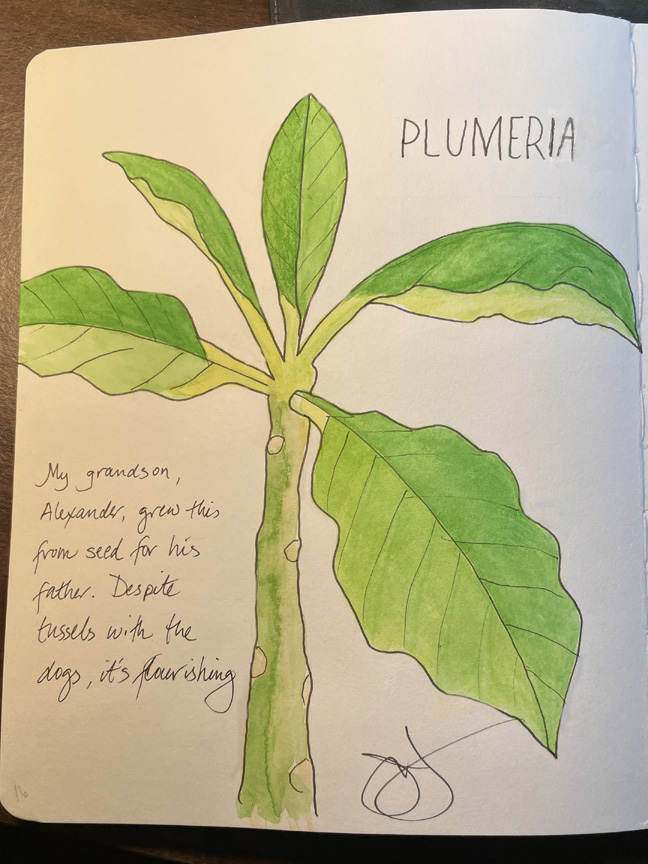 PLUMERIA
My grandson,
Alexander, grew this
from seed for his
father. Despite
tussels with the
dogs, it's flourishing
16